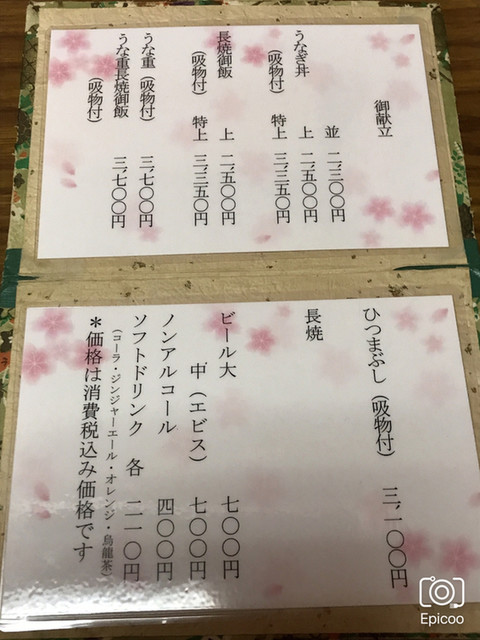 御献立
うなぎ丼 並 二、三〇〇円
上 二、五〇〇円
(吸物付) 特上 三、三五〇円
長焼御飯 上 二、五〇〇円
(吸物付) 特上 三、三五〇円
うな重 (吸物付) 三、七〇〇円
うな重長焼御飯 三、七〇〇円
(吸物付)
ひつまぶし (吸物付) 三、一〇〇円
長焼
ビール大 七〇〇円
中 (エビス) 七〇〇円
ノンアルコール 四〇〇円
ソフトドリンク 各 二一〇円
(コーラ・ジンジャーエール・オレンジ・烏龍茶)
*価格は消費税込み価格です
Epicoo